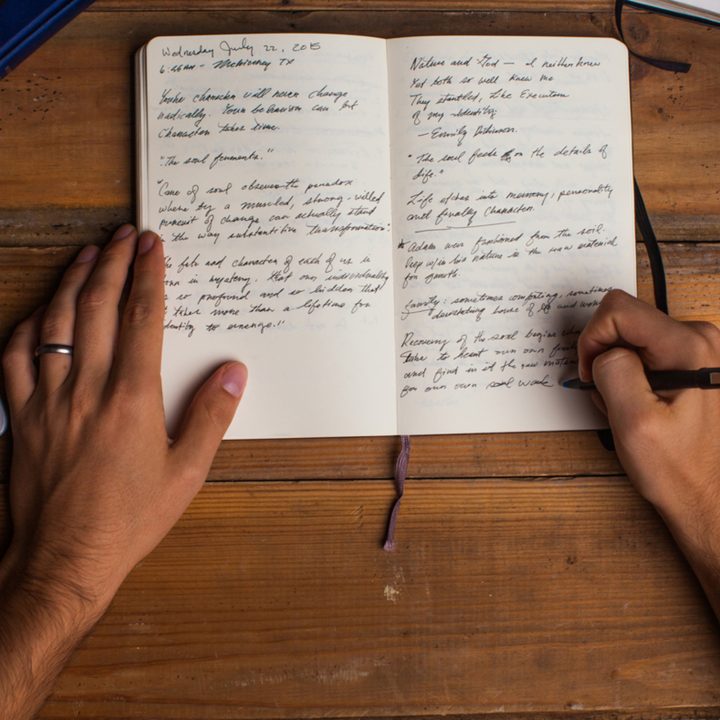 Wednesday July 22, 2015
6:26am - McKinney TX
Your character will never change
radically. Your behavior can but
Character takes time.
"The soul ferments."
"Care of soul observes the paradox
where by a muscled, strong-willed
pursuit of change can actually stand
in the way substantive transformation."
The fate and character of each of us is
born in mystery, that our individuality
is so profound and so hidden that
it takes more than a lifetime for
identity to emerge."
Nature and God — I neither knew
Yet both so well knew me
They startled, Like Executors
of my identity.
— Emily Dickinson.
"The soul feeds on the details of
life."
Life etches into memory, personality
and finally Character.
* Adam was fashioned from the soil.
Deep w/in his nature is the raw material
for growth.
Family: sometimes comforting, sometimes
devastating house of life and
Recovery of the soul begins when
take to heart our own
and find in it the raw material
for our own soul work